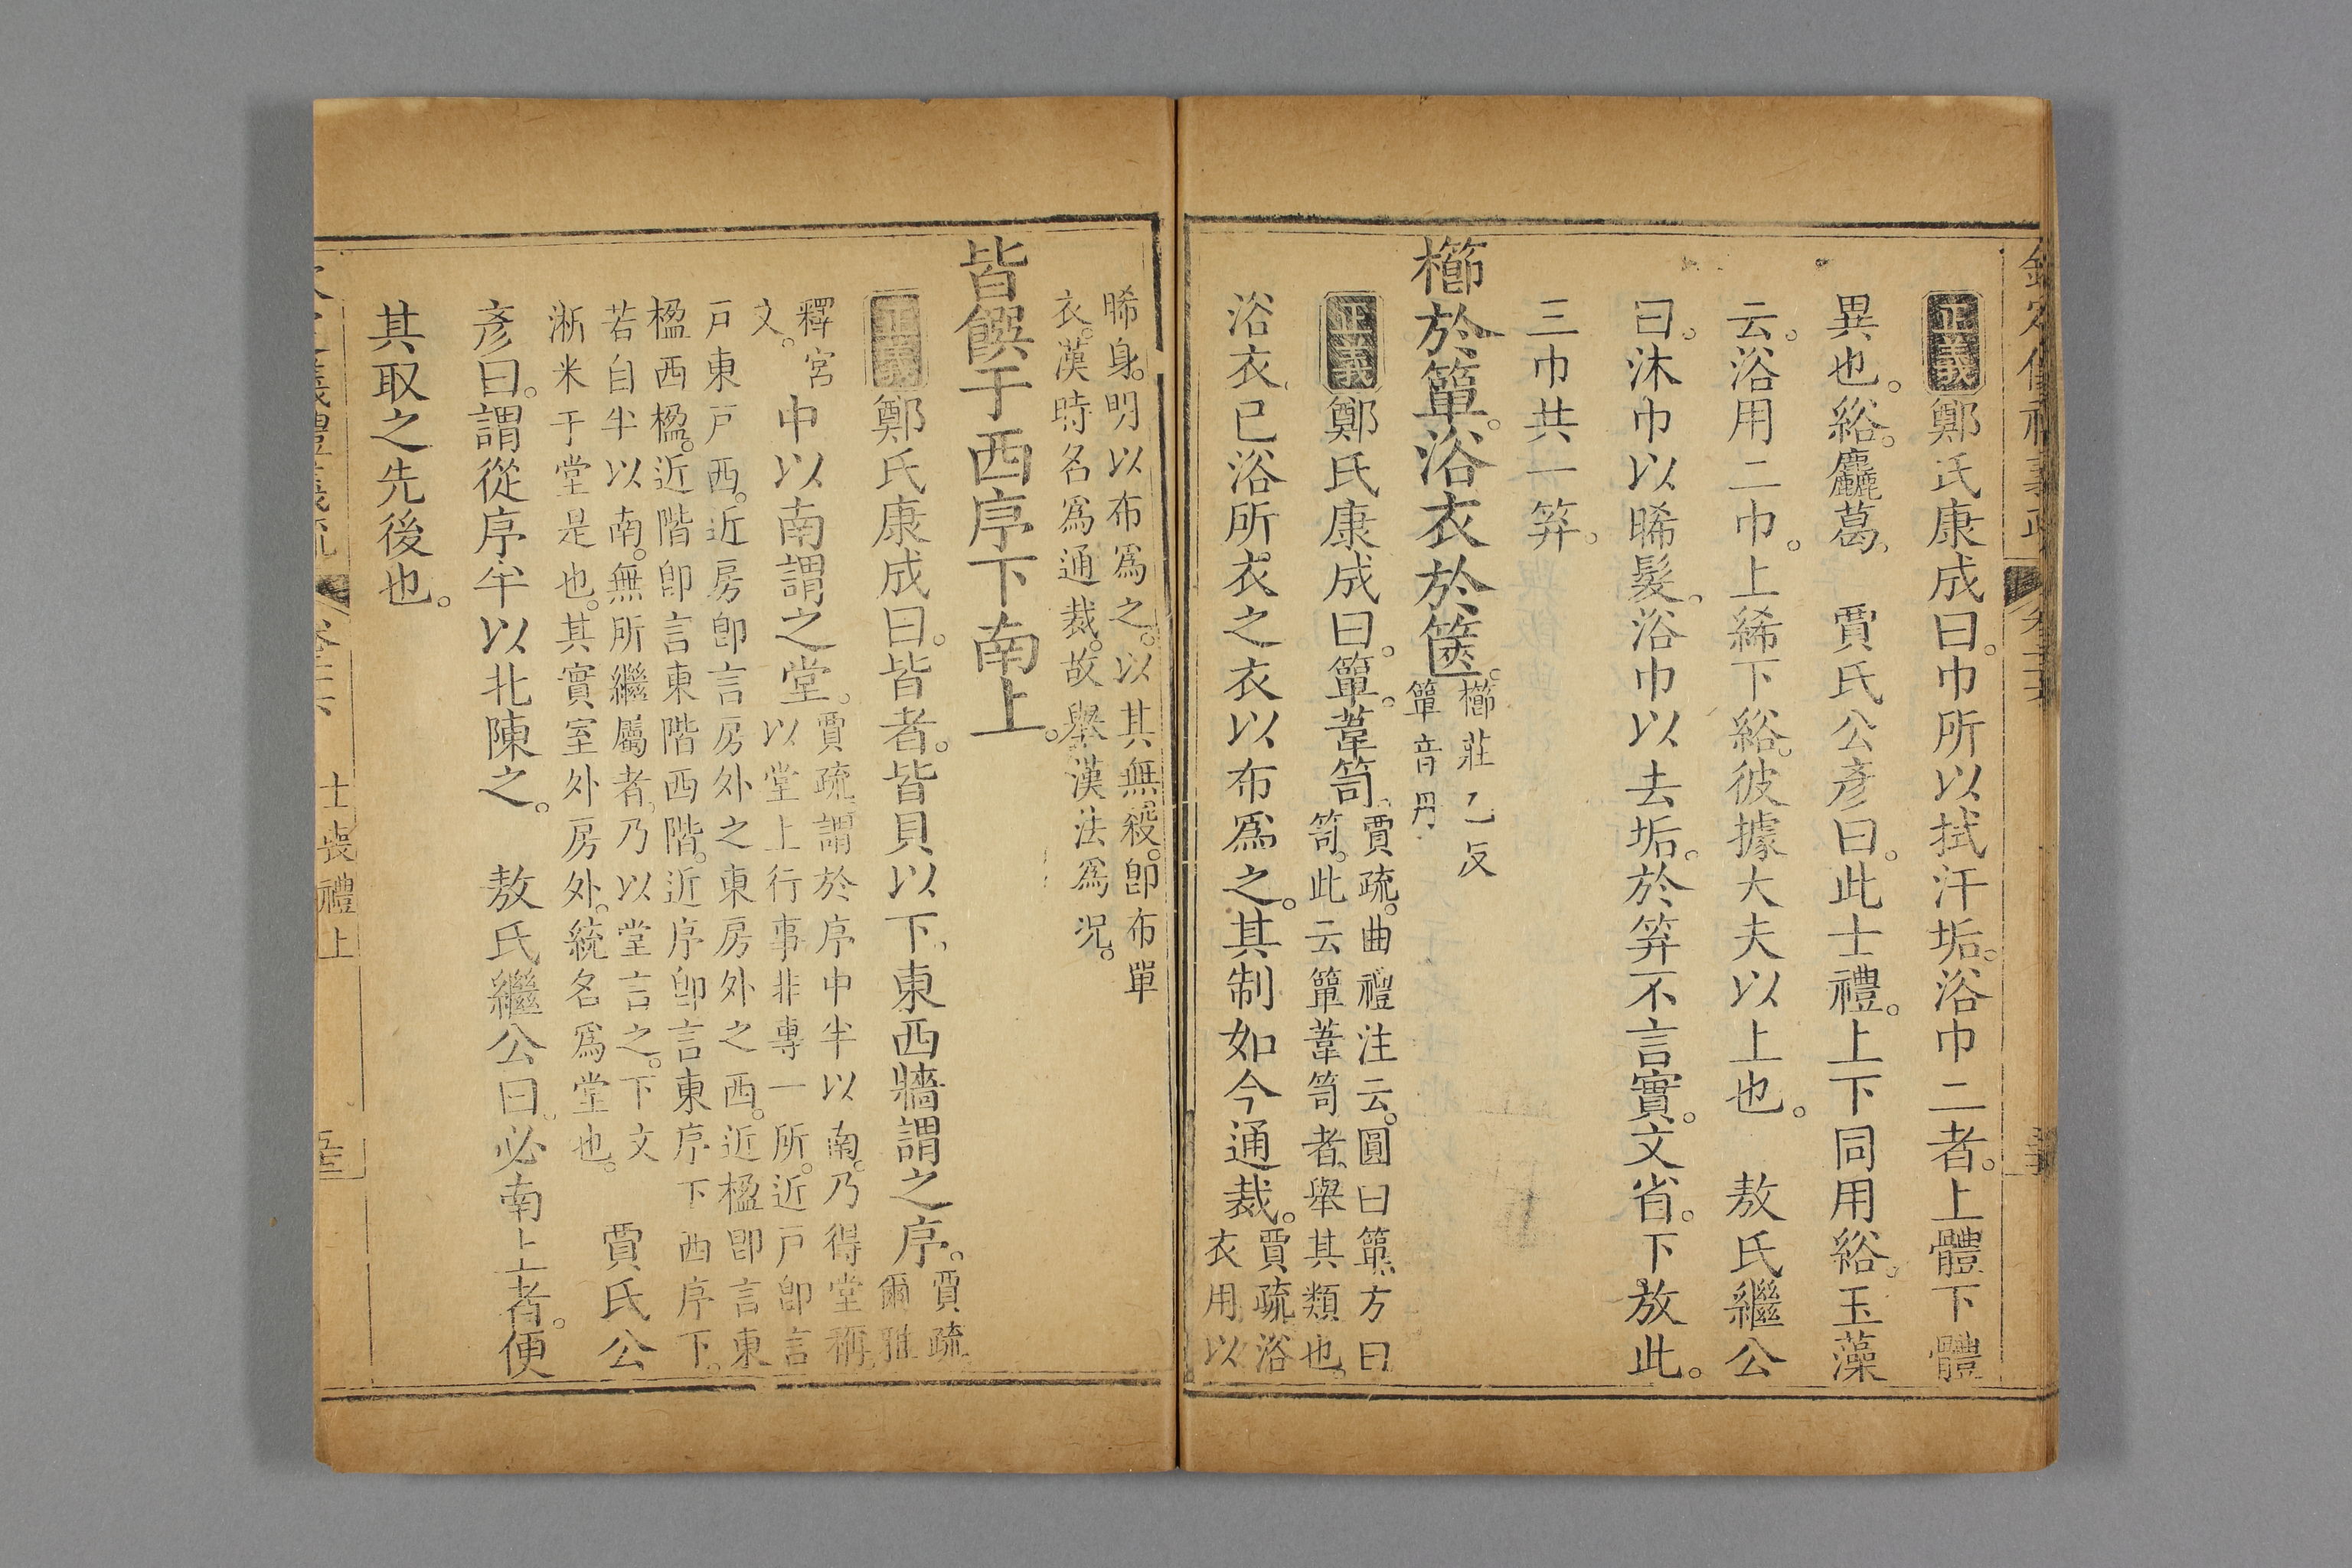 正義鄭氏康成曰。巾所以拭汗垢。浴巾二者。上體下體
異也。綌。麤葛。　賈氏公彥曰。此士禮。上下同用綌。玉藻
云。浴用二巾。上絺下綌。彼據大夫以上也。　敖氏繼公
曰。沐巾以晞髮。浴巾以去垢。於笲不言實。文省。下放此。
三巾共一笲。
櫛於簞。浴衣於篋。櫛莊乙反
簞音丹
正義鄭氏康成曰。簞。葦笥。賈疏。曲禮注云。圓曰簞。方曰
笥。此云簞葦笥者。舉其類也。
浴衣。已浴所衣之衣以布爲之。其制如今通裁。賈疏浴
衣用以
晞身。明以布爲之。以其無殺。卽布單
衣。漢時名爲通裁。故舉漢法爲況。
皆饌于西序下南上。
正義鄭氏康成曰。皆者。皆貝以下。東西牆謂之序。賈疏
爾雅
釋宮
文。
中以南謂之堂。賈疏謂於序中半以南。乃得堂稱。
以堂上行事非專一所。近戶卽言
戶東戶西。近房卽言房外之東房外之西。近楹卽言東
楹西楹。近階卽言東階西階。近序卽言東序下西序下。
若自半以南。無所繼屬者。乃以堂言之。下文
淅米于堂是也。其實室外房外。統名爲堂也。
賈氏公
彥曰。謂從序半以北陳之。　敖氏繼公曰。必南上者。便
其取之先後也。
士喪禮上